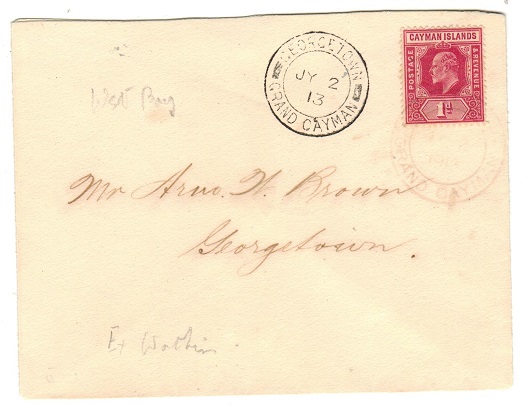 CAYMAN ISLANDS
POSTAGE
& REVENUE
1d
GEORGETOWN
JY 2
13
GRAND CAYMAN
West Bay
GRAND CAYMAN
Mr Arno. H. Brown
Georgetown.
Ex